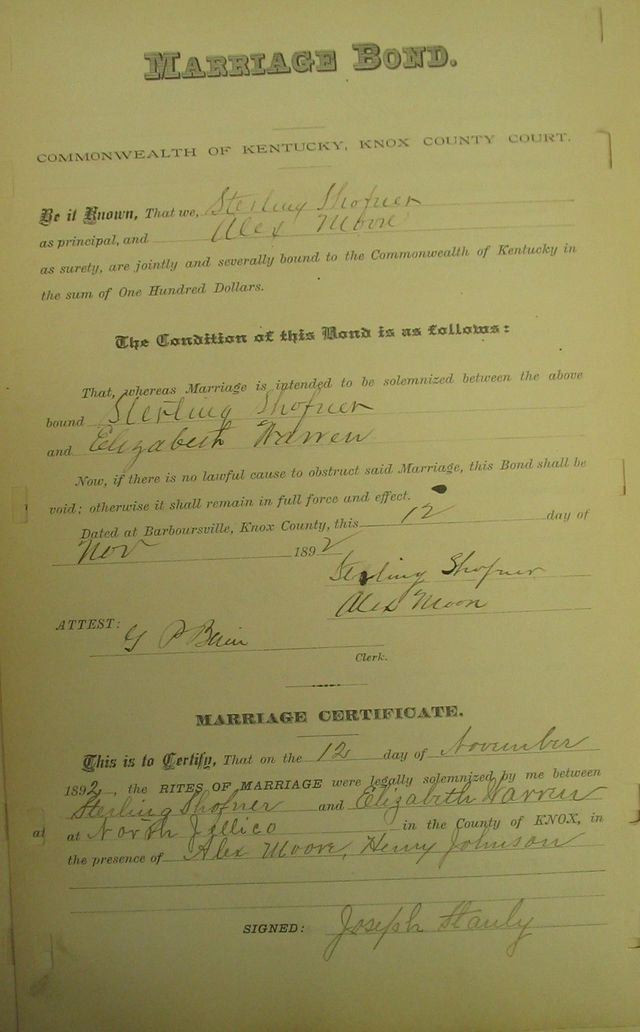 MARRIAGE BOND.
COMMONWEALTH OF KENTUCKY, KNOX COUNTY COURT.
Be it Known, That we, Sterling Shofner
as principal, and Alex Moore
as surety, are jointly and severally bound to the Commonwealth of Kentucky in
the sum of One Hundred Dollars.
The Condition of this Bond is as follows:
That, whereas Marriage is intended to be solemnized between the above
bound Sterling Shofner
and Elizabeth Warren
Now, if there is no lawful cause to obstruct said Marriage, this Bond shall be
void; otherwise it shall remain in full force and effect.
Dated at Barboursville, Knox County, this 12 day of
Nov 1892
Sterling Shofner
Alex Moon
ATTEST:
G P
Clerk.
MARRIAGE CERTIFICATE.
This is to Certify, That on the 12 day of November
1892, the RITES OF MARRIAGE were legally solemnized by me between
Sterling Shofner and Elizabeth Warren
at North Jellico in the County of KNOX, in
the presence of Alex Moore, Henry Johnson
SIGNED: Joseph Stanly